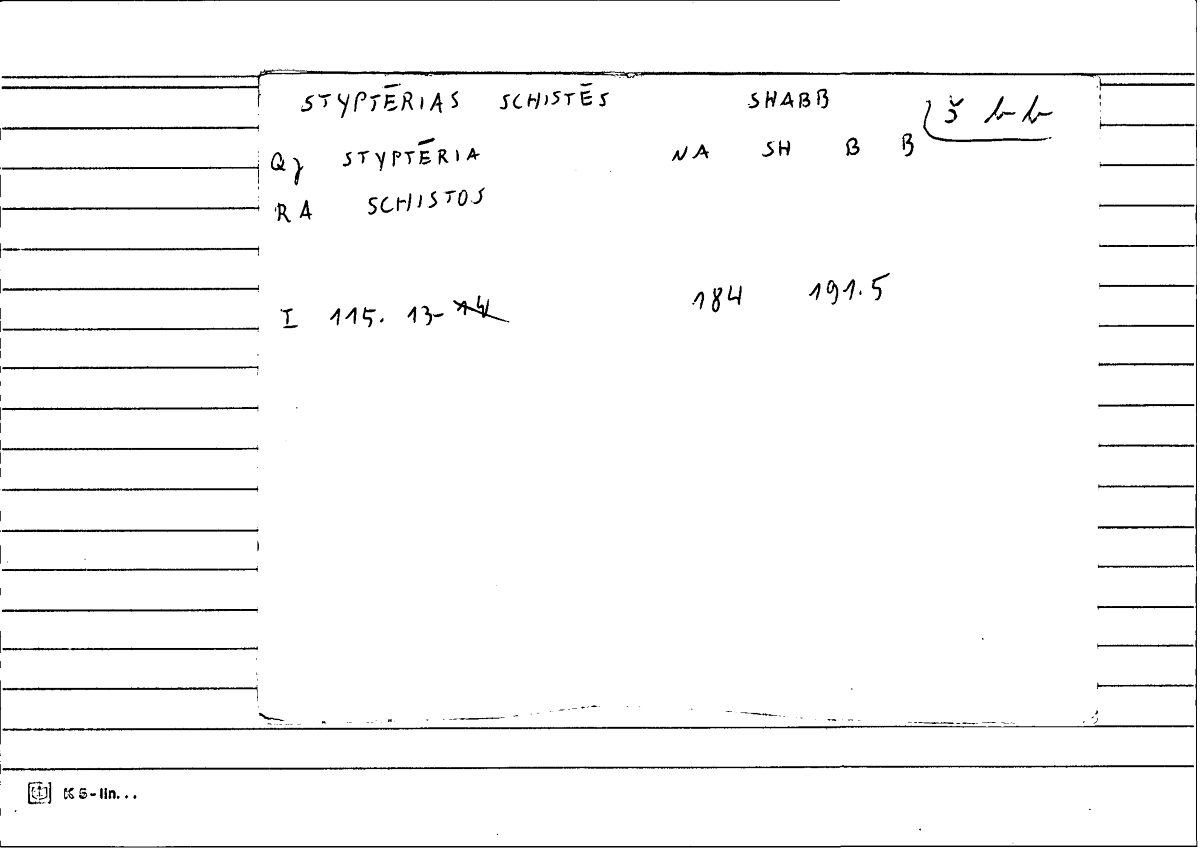 STYPTĒRIAS SCHISTĒS SHABB š b b
Qz STYPTĒRIA NA SH B B
RA SCHISTOS
I 115. 13-14 184 191.5
K5-lin...